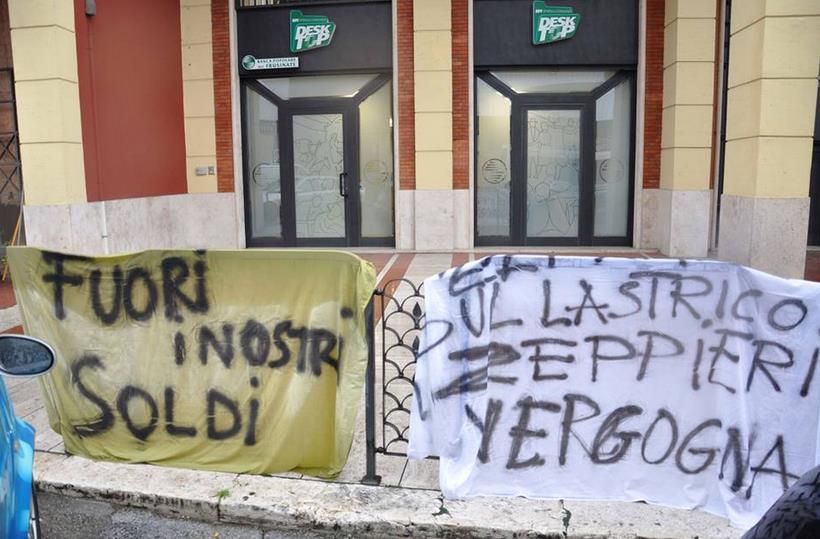 DESK
TOP
BANCA POPOLARE
DEL FRUSINATE
DESK
TOP
FUORI
i NOSTRi
SOLDi
UL LASTRICO
ZEPPiERi
VERGOGNA